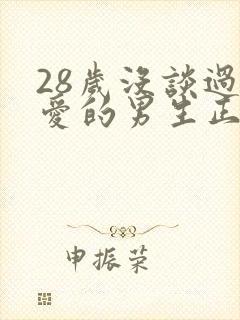 28歲沒談過
愛的男生正
申振荣